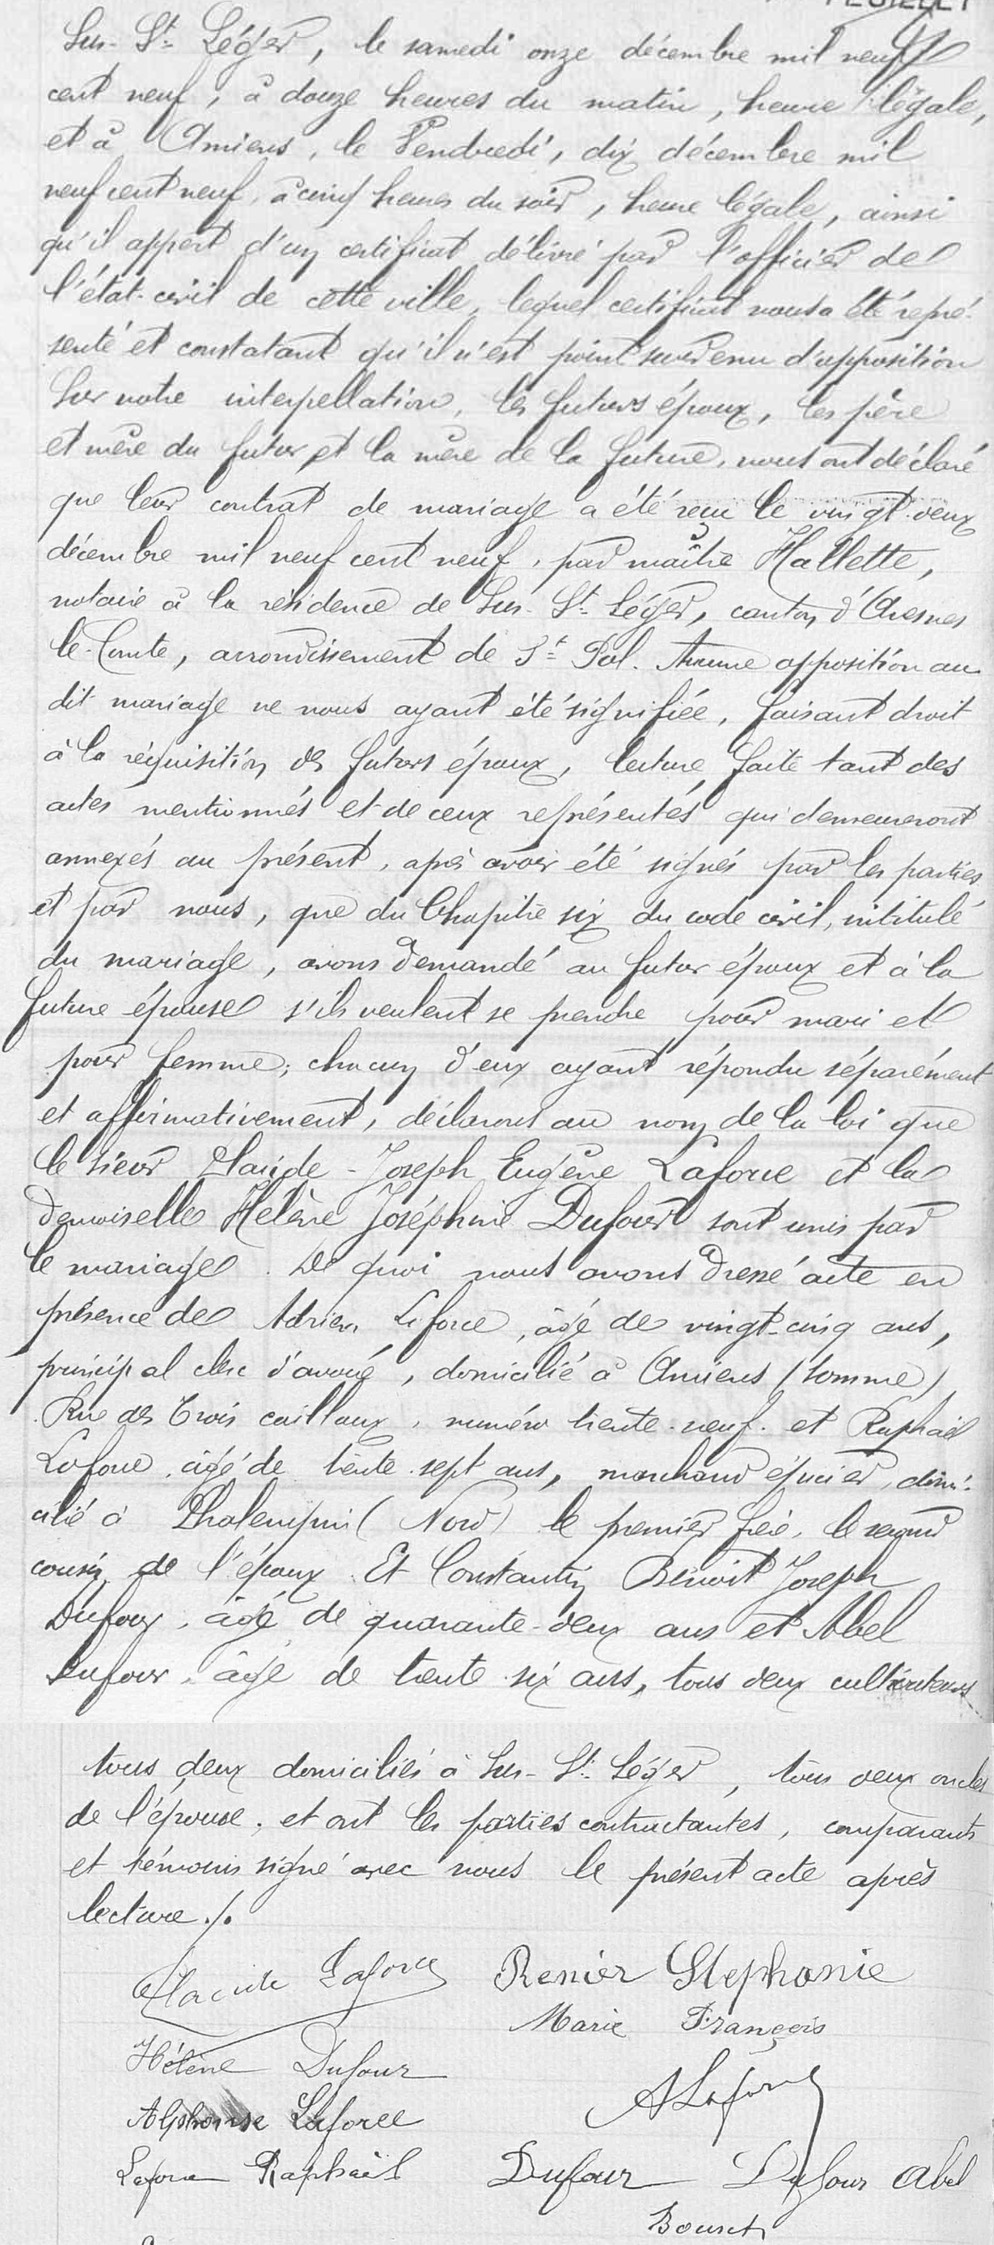 FEUILLET
Sus-St-Léger, le samedi onze décembre mil neuf
cent neuf, à douze heures du matin, heure légale,
et à Amiens, le Vendredi, dix décembre mil
neuf cent neuf, à cinq heures du soir, heure légale, ainsi
qu'il appert d'un certificat délivré par l'officier de
l'état-civil de cette ville, lequel certificat nous a été repré-
senté et constatant qu'il n'est point survenu d'opposition
Sur notre interpellation, les futurs époux, les père
et mère du futur et la mère de la future, nous ont déclaré
que leur contrat de mariage a été reçu le vingt-deux
décembre mil neuf cent neuf, par maître Hallette,
notaire à la résidence de Sus-St-Léger, canton d'Avesnes
le-Comte, arrondissement de St Pol. Aucune opposition au
dit mariage ne nous ayant été signifiée, faisant droit
à la réquisition des futurs époux, lecture faite tant des
actes mentionnés et de ceux représentés qui demeureront
annexés au présent, après avoir été signés par les parties
et par nous, que du Chapitre six du code civil, intitulé
du mariage, avons demandé au futur époux et à la
future épouse s'ils veulent se prendre pour mari et
pour femme; chacun d'eux ayant répondu séparément
et affirmativement, déclarons au nom de la loi que
le sieur Placide-Joseph Eugène Laforce et la
demoiselle Hélène Joséphine Dufour sont unis par
le mariage. De quoi nous avons dressé acte en
présence de Adrien Laforce, âgé de vingt-cinq ans,
principal clerc d'avoué, domicilié à Amiens (Somme),
Rue des Trois cailloux, numéro trente-neuf. et Raphaël
Laforce, âgé de trente-sept ans, marchand épicier, domi-
cilié à Phalempin (Nord) le premier frère, le second
cousin de l'époux. Et Constantin Benoit Joseph
Dufour, âgé de quarante-deux ans et Abel
Dufour, âgé de trente-six ans, tous deux cultivateurs
tous deux domiciliés à Sus-St-Léger, tous deux oncles
de l'épouse; et ont les parties contractantes, comparants
et témoins signé avec nous le présent acte après
lecture./.
Placide Laforce Renier Stephanie
Marie François
Hélène Dufour
ALaforce
Alphonse Laforce
Laforce Raphaël Dufour Dufour Abel